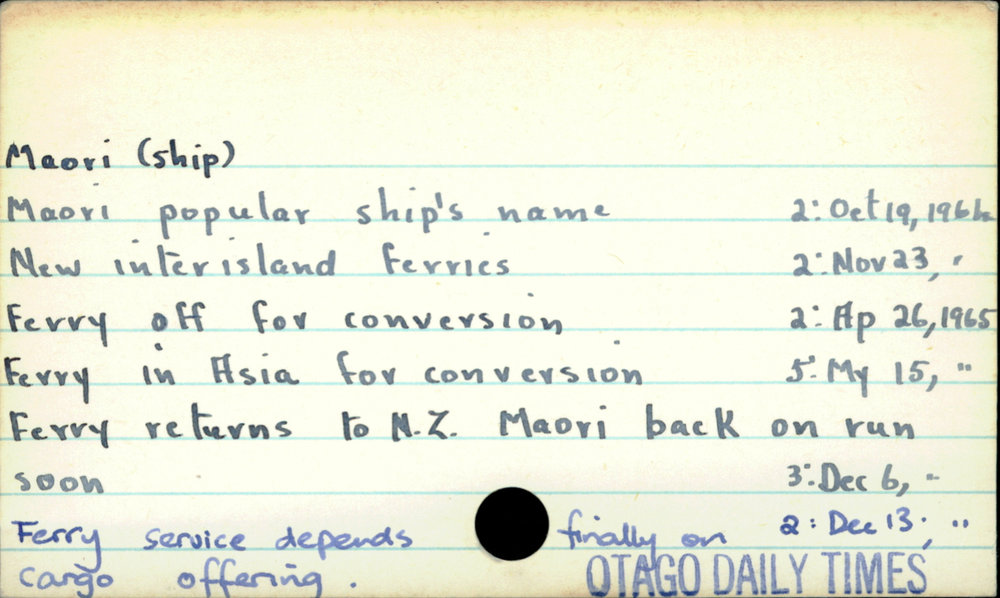 Maori (ship)
Maori popular ship's name 2: Oct 19, 1964
New interisland ferries 2: Nov 23, "
Ferry off for conversion 2: Ap 26, 1965
Ferry in Asia for conversion 5: My 15, "
Ferry returns to N.Z. Maori back on run
soon 3: Dec 6, "
Ferry service depends finally on 2: Dec 13; "
cargo offering.
OTAGO DAILY TIMES